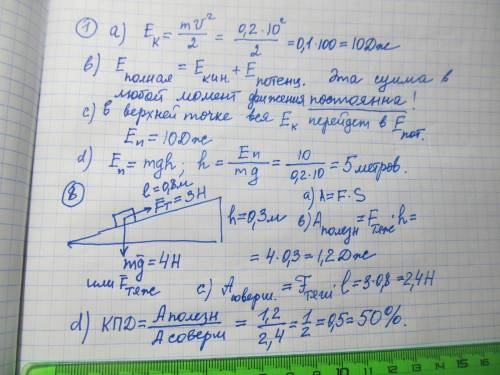 ① a) Eₖ = mV²/2 = 0,2·10²/2 = 0,1·100 = 10Дж
b) E полная = E кин + E потенц. Эта сумма в
любой момент движения постоянна!
c) в верхней точке вся Eₖ перейдет в E пот.
Eп = 10Дж
d) Eп = mgh; h = Eп/mg = 10/0,2·10 = 5 метров.
⑧ l = 0,8м
F̄т = 3Н
h = 0,3м
mḡ = 4Н
или F̄тяж
a) A = F·S
b) A полезн = Fтяж·h =
= 4·0,3 = 1,2Дж
c) A соверш. = Fтяги·l = 3·0,8 = 2,4Н
d) КПД = Aполезн/Aсоверш = 1,2/2,4 = 1/2 = 0,5 = 50%.